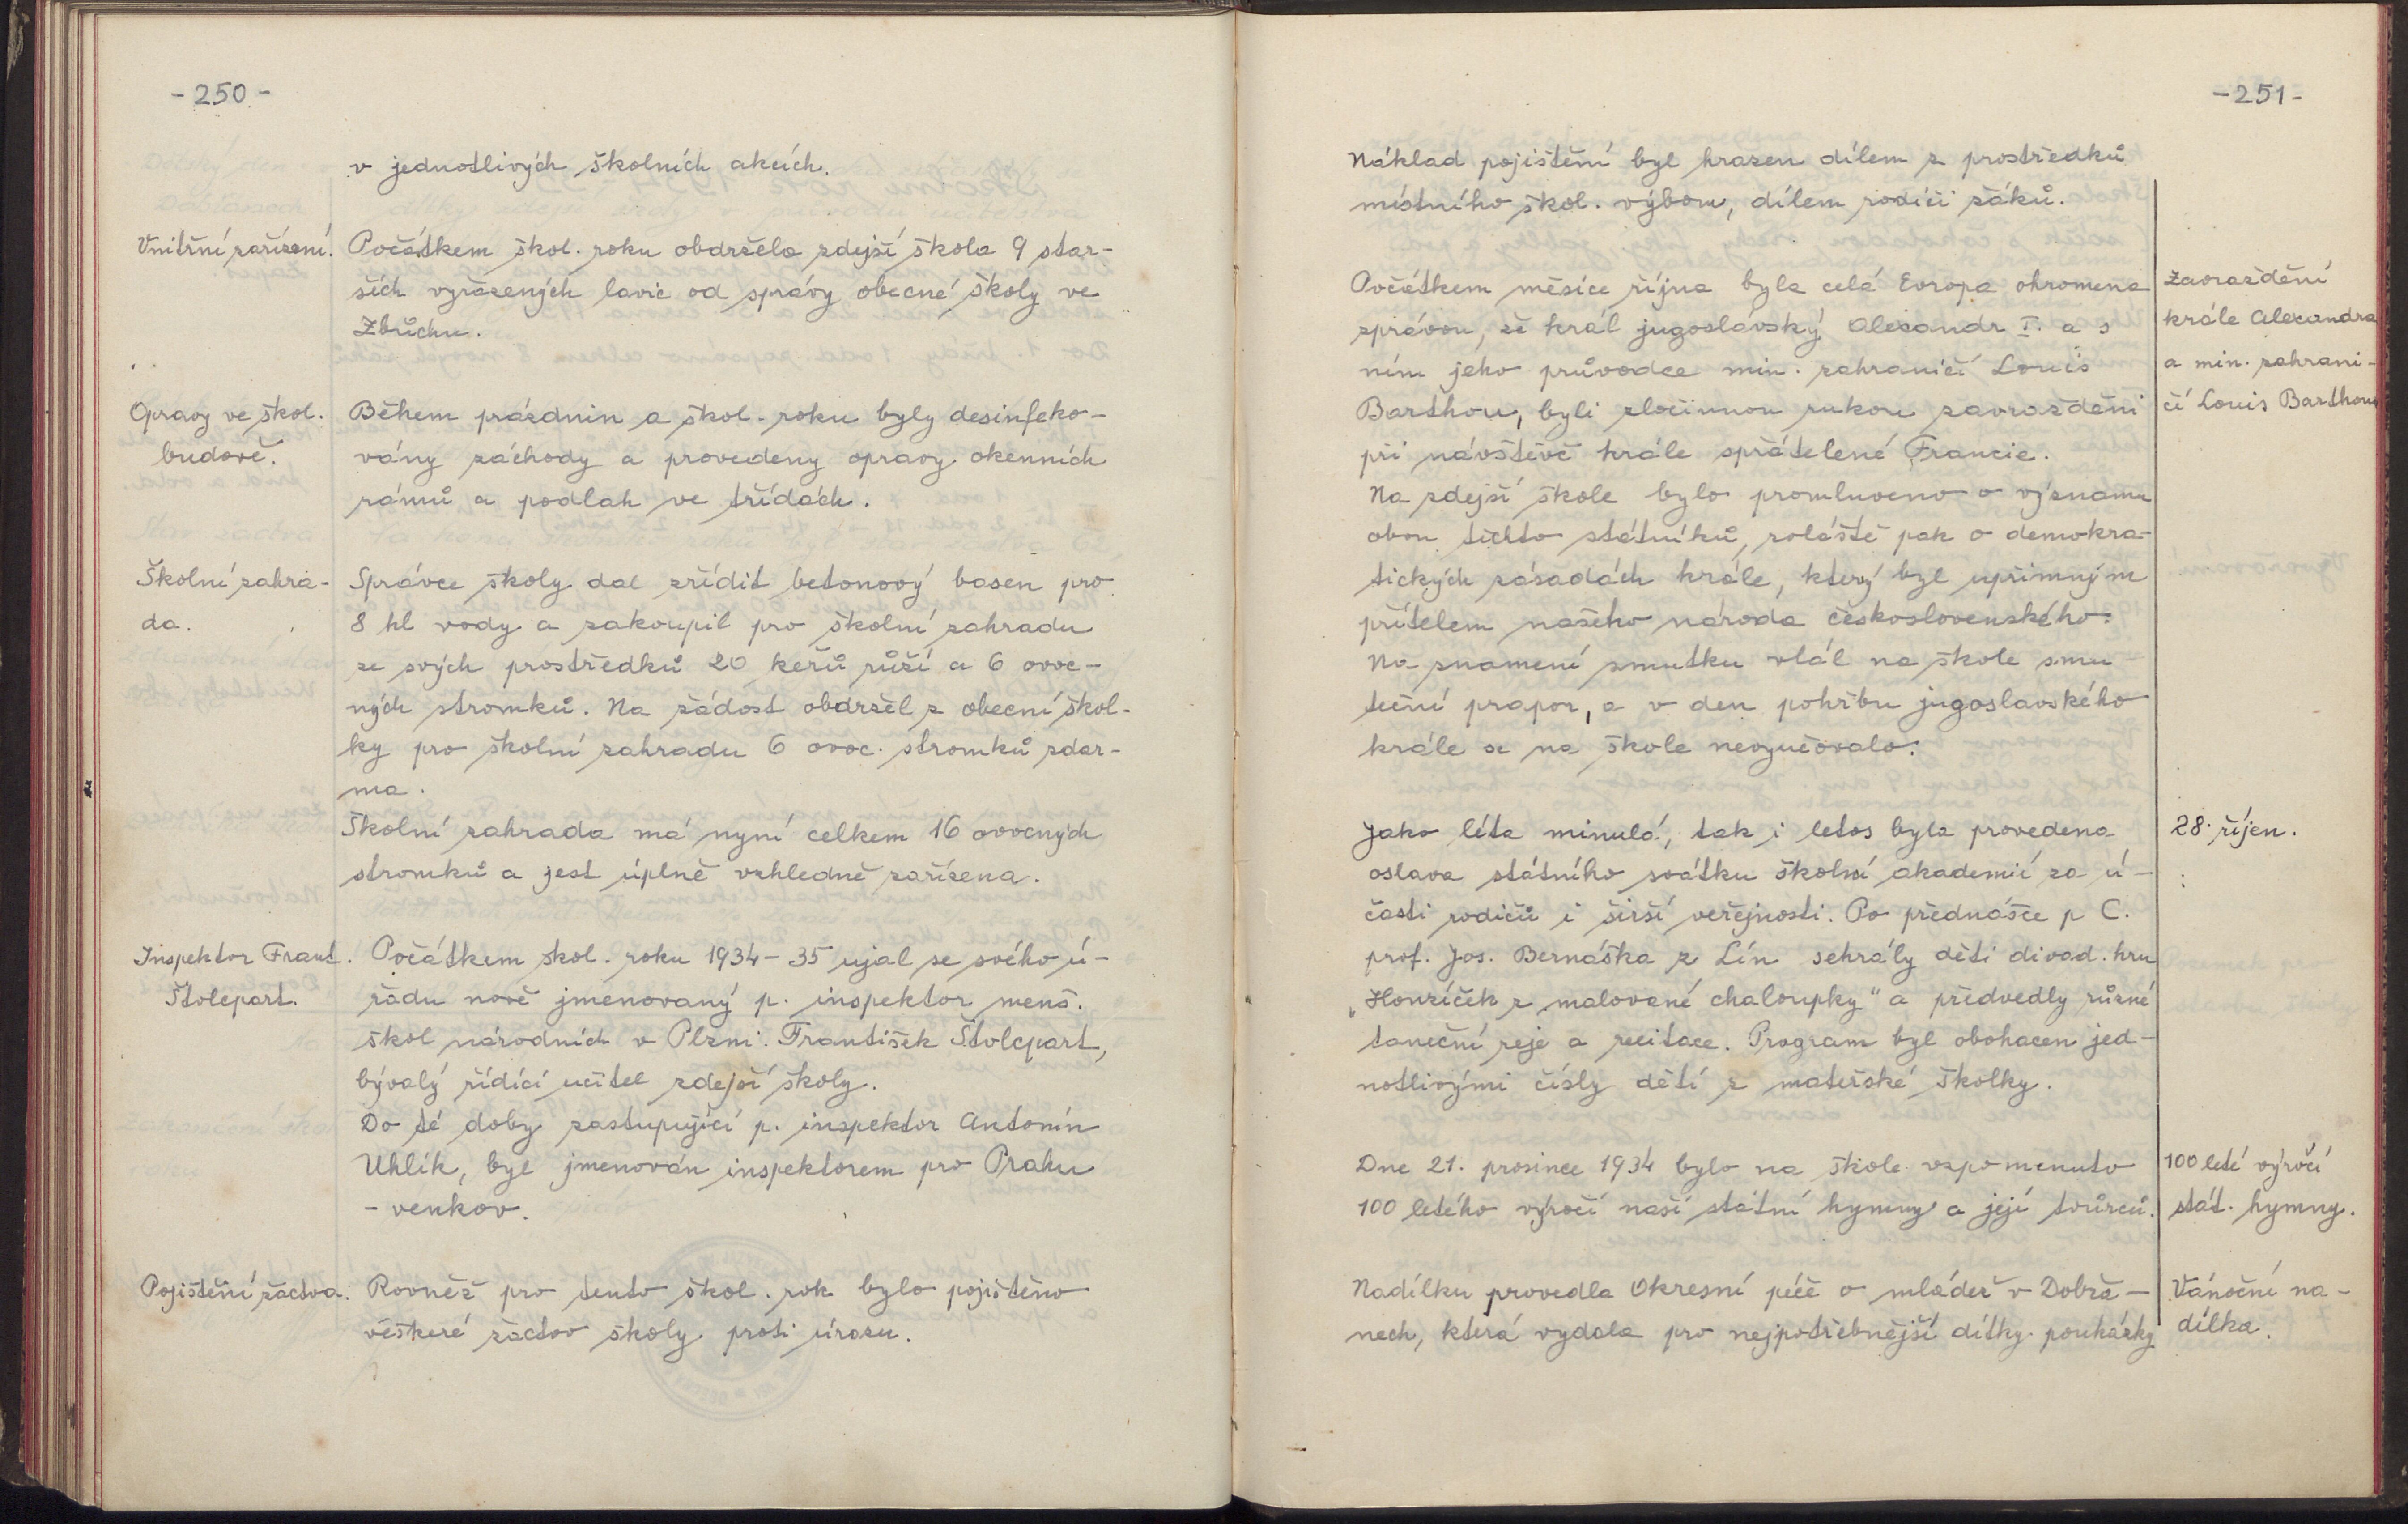 - 250 -
v jednotlivých školních akcích.
Vnitřní zařízení.
Počátkem škol. roku obdržela zdejší škola 9 star-
ších vyřazených lavic od správy obecné školy ve
Zbůchu.
Opravy ve škol.
budově.
Během prázdnin a škol. roku byly desinfeko-
vány záchody a provedeny opravy okenních
rámů a podlah ve třídách.
Školní zahra-
da.
Správce školy dal zřídit betonový basen pro
8 hl vody a zakoupil pro školní zahradu
ze svých prostředků 20 keřů růží a 6 ovoc-
ných stromků. Na žádost obdržel z obecní škol-
ky pro školní zahradu 6 ovoc. stromků zdar-
ma.
Školní zahrada má nyní celkem 16 ovocných
stromků a jest úplně vzhledně zařízena.
Inspektor Frant.
Štolcpart.
Počátkem škol. roku 1934-35 ujal se svého ú-
řadu nově jmenovaný p. inspektor menš.
škol národních v Plzni: František Štolcpart,
bývalý řídící učitel zdejší školy.
Do té doby zastupující p. inspektor Antonín
Uhlík, byl jmenován inspektorem pro Prahu
- venkov.
Pojištění žactva.
Rovněž pro tento škol. rok bylo pojištěno
veškeré žactvo školy proti úrazu.
- 251 -
Náklad pojištění byl hrazen dílem z prostředků
místního škol. výboru, dílem rodiči žáků.
Počátkem měsíce října byla celá Evropa ohromena
zprávou, že král jugoslávský Alexandr I. a s
ním jeho průvodce min. zahraničí Louis
Barthou, byli zločinnou rukou zavražděni
při návštěvě krále spřátelené Francie.
Na zdejší škole bylo promluveno o významu
obou těchto státníků, zvláště pak o demokra-
tických zásadách krále, který byl upřímným
přítelem našeho národa československého.
Na znamení smutku vlál na škole smu-
teční prapor, a v den pohřbu jugoslavského
krále se na škole nevyučovalo.
Zavraždění
krále Alexandra
a min. zahrani-
čí Louis Barthou
Jako léta minulá, tak i letos byla provedena
oslava státního svátku školní akademií za ú-
časti rodičů i širší veřejnosti. Po přednášce p C.
prof. Jos. Bernáška z Lín sehrály děti divad. hru
„Honzíček z malované chaloupky" a předvedly různé
taneční reje a recitace. Program byl obohacen jed-
notlivými čísly dětí z mateřské školky.
28. říjen.
Dne 21. prosince 1934 bylo na škole vzpomenuto
100 letého výročí naší státní hymny a její tvůrců.
100 leté výročí
stát. hymny.
Nadílku provedla Okresní péče o mládež v Dobřa-
nech, která vydala pro nejpotřebnější dítky poukázky
Vánoční na-
dílka.